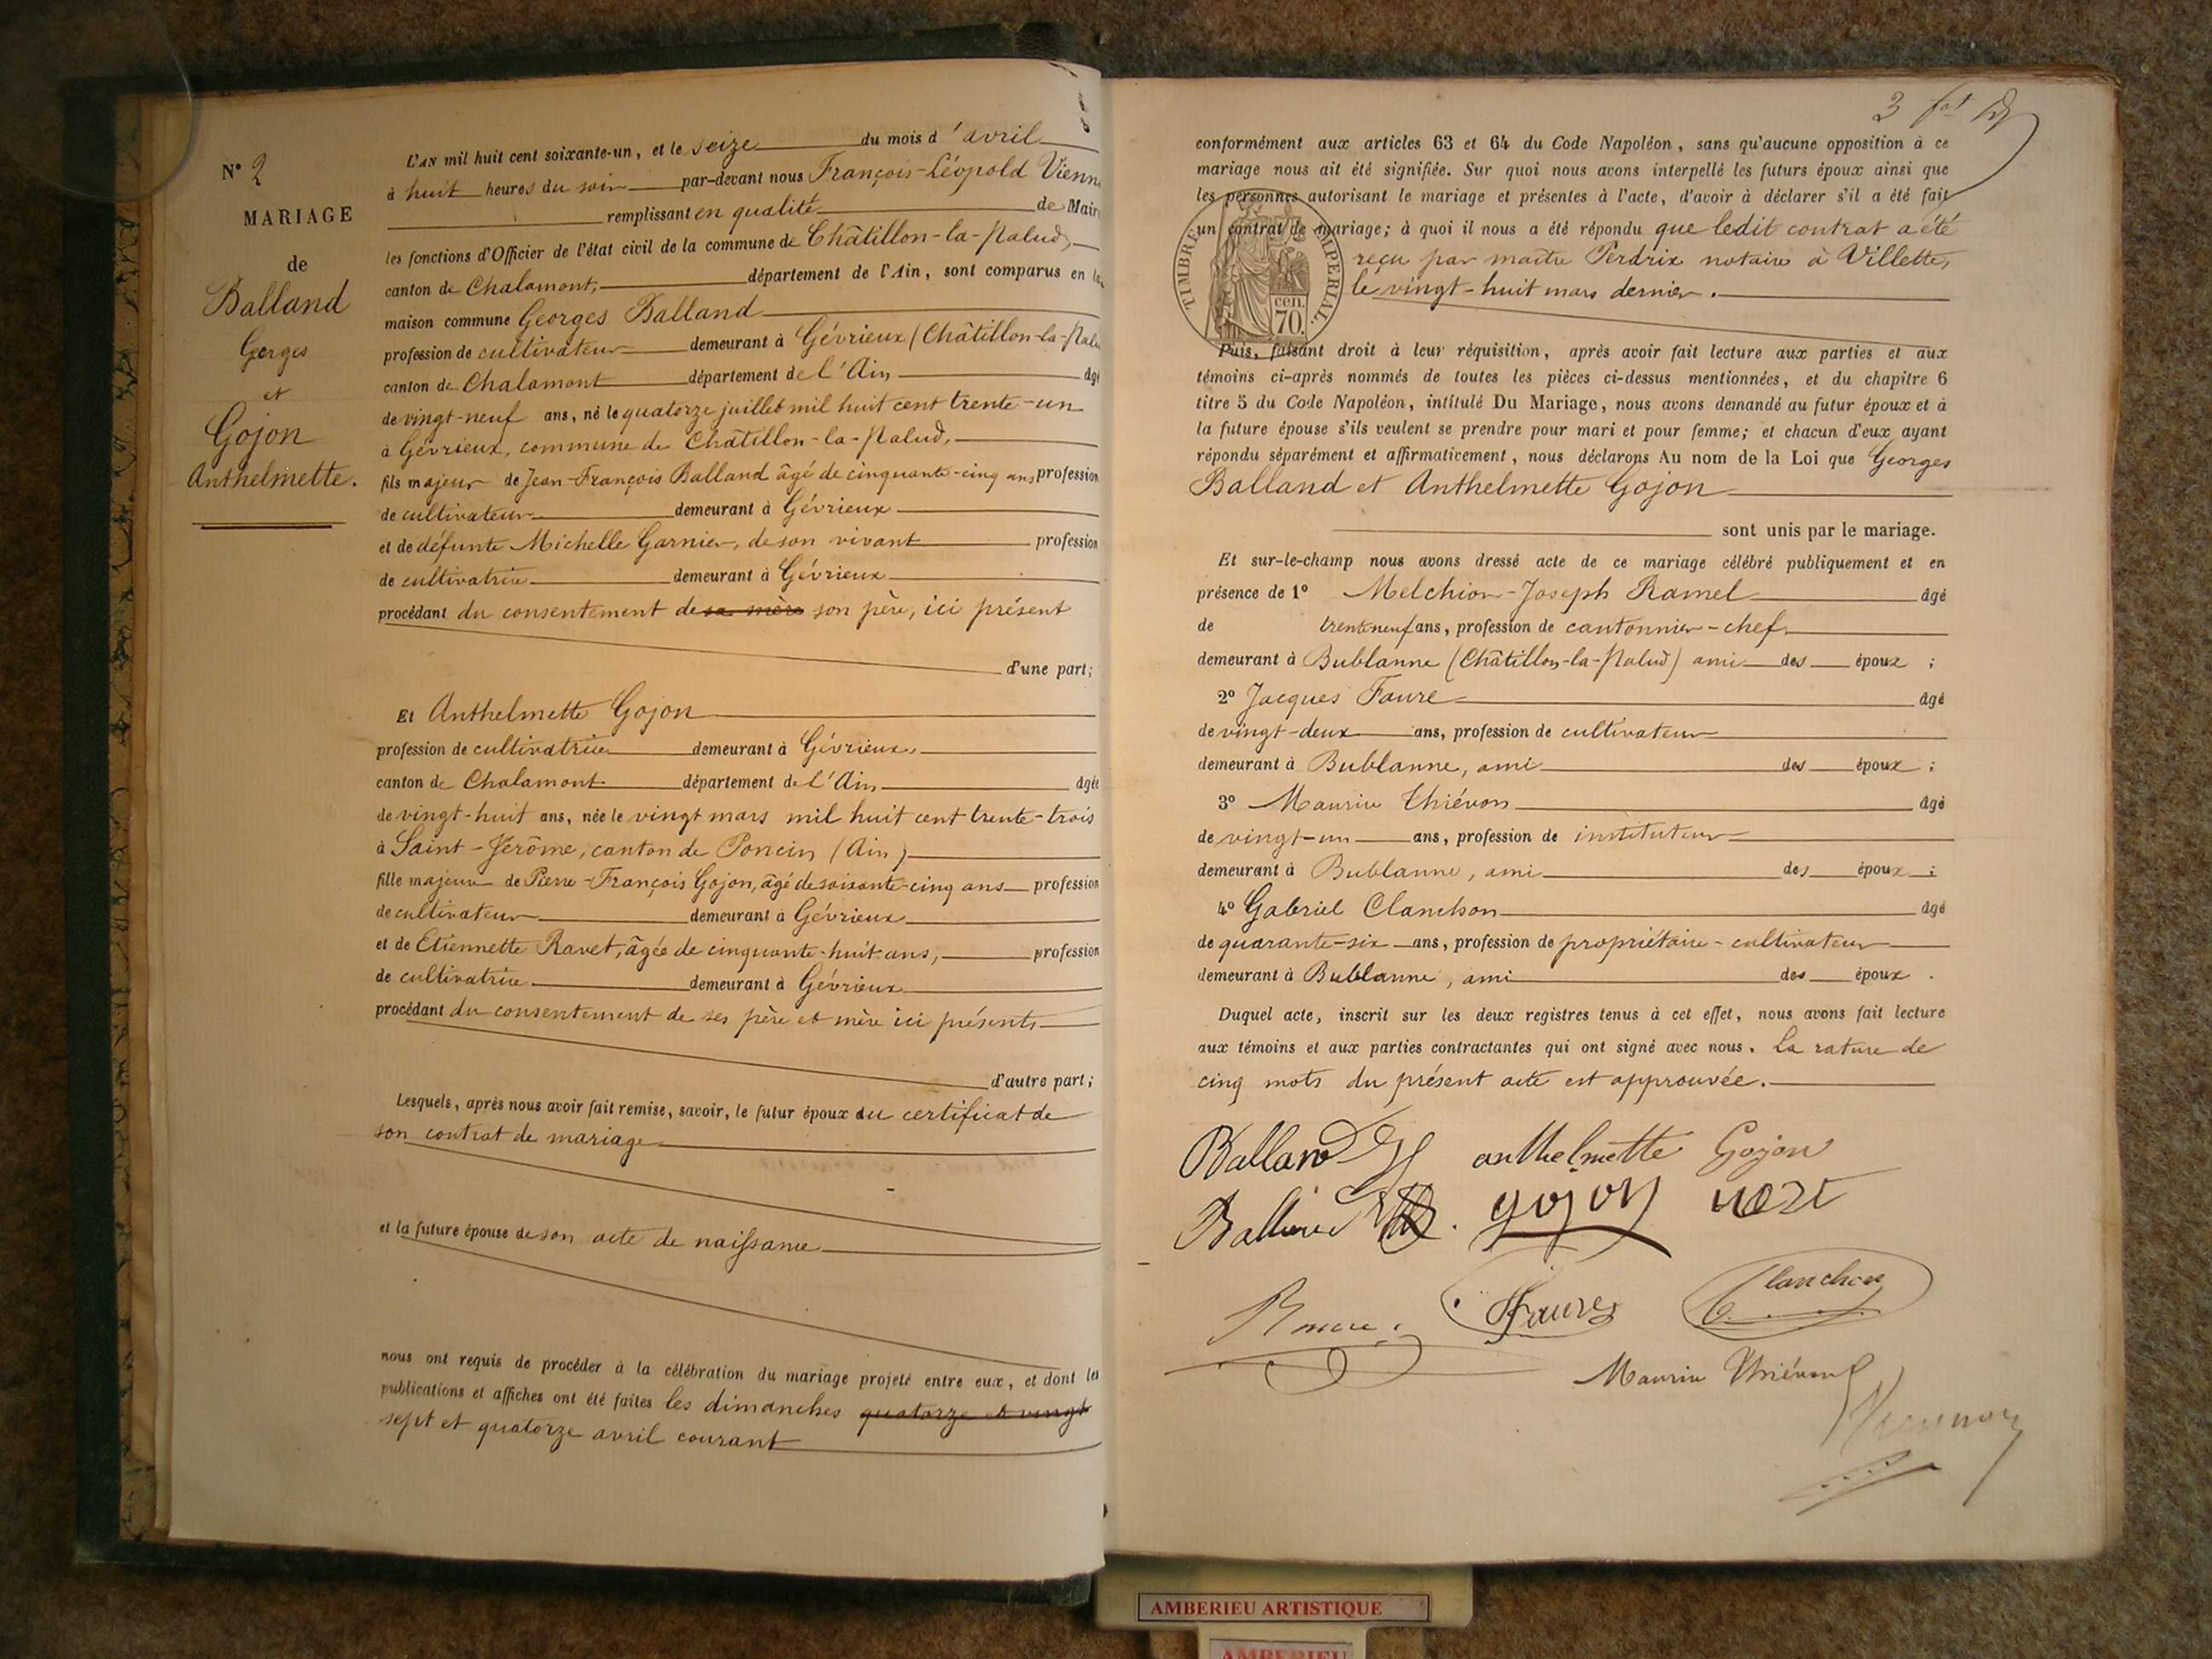 N° 2
MARIAGE
de
Balland
Gorges
et
Gojon
Anthelmette.
L'AN mil huit cent soixante-un, et le seize du mois d'avril
à huit heures du soir par-devant nous François-Léopold Vienn
remplissant en qualité de Maire
les fonctions d'Officier de l'état civil de la commune de Châtillon-la-Palud,
canton de Chalamont, département de l'Ain, sont comparus en la
maison commune Georges Balland
profession de cultivateur demeurant à Gévrieux (Châtillon-la-Palu
canton de Chalamont département de l'Ain âgé
de vingt-neuf ans, né le quatorze juillet mil huit cent trente-un
à Gévrieux, commune de Châtillon-la-Palud,
fils majeur de Jean-François Balland âgé de cinquante-cinq ans, profession
de cultivateur demeurant à Gévrieux
et de défunte Michelle Garnier, de son vivant profession
de cultivatrice demeurant à Gévrieux
procédant du consentement de sa mère son père, ici présent
d'une part;
Et Anthelmette Gojon
profession de cultivatrice demeurant à Gévrieux
canton de Chalamont département de l'Ain âgée
de vingt-huit ans, née le vingt mars mil huit cent trente-trois
à Saint-Jérôme, canton de Poncin (Ain)
fille majeure de Pierre-François Gojon, âgé de soixante-cinq ans profession
de cultivateur demeurant à Gévrieux
et de Etiennette Ravet, âgée de cinquante-huit ans, profession
de cultivatrice demeurant à Gévrieux
procédant du consentement de ses père et mère ici présents
d'autre part;
Lesquels, après nous avoir fait remise, savoir, le futur époux du certificat de
son contrat de mariage
et la future épouse de son acte de naissance
nous ont requis de procéder à la célébration du mariage projeté entre eux, et dont les
publications et affiches ont été faites les dimanches quatorze et vingt
sept et quatorze avril courant
3 fos
conformément aux articles 63 et 64 du Code Napoléon, sans qu'aucune opposition à ce
mariage nous ait été signifiée. Sur quoi nous avons interpellé les futurs époux ainsi que
les personnes autorisant le mariage et présentes à l'acte, d'avoir à déclarer s'il a été fait
un contrat de mariage; à quoi il nous a été répondu que ledit contrat a été
reçu par maître Perdrix notaire à Villette,
le vingt-huit mars dernier.
TIMBRE IMPERIAL
cen.
70.
Puis, faisant droit à leur réquisition, après avoir fait lecture aux parties et aux
témoins ci-après nommés de toutes les pièces ci-dessus mentionnées, et du chapitre 6
titre 5 du Code Napoléon, intitulé Du Mariage, nous avons demandé au futur époux et à
la future épouse s'ils veulent se prendre pour mari et pour femme; et chacun d'eux ayant
répondu séparément et affirmativement, nous déclarons Au nom de la Loi que Georges
Balland et Anthelmette Gojon
sont unis par le mariage.
Et sur-le-champ nous avons dressé acte de ce mariage célébré publiquement et en
présence de 1° Melchior-Joseph Ramel âgé
de trente neuf ans, profession de cantonnier-chef
demeurant à Bublanne (Châtillon-la-Palud) ami des époux ;
2° Jacques Faure âgé
de vingt-deux ans, profession de cultivateur
demeurant à Bublanne, ami des époux ;
3° Maurice Thiévon âgé
de vingt-un ans, profession de instituteur
demeurant à Bublanne, ami des époux ;
4° Gabriel Clanchon âgé
de quarante-six ans, profession de propriétaire-cultivateur
demeurant à Bublanne, ami des époux .
Duquel acte, inscrit sur les deux registres tenus à cet effet, nous avons fait lecture
aux témoins et aux parties contractantes qui ont signé avec nous. La rature de
cinq mots du présent acte est approuvée.
Balland anthelmette Gojon
Balland gojon
Faure Clanchon
Maurice Thiévon
AMBERIEU ARTISTIQUE
AMBERIEU